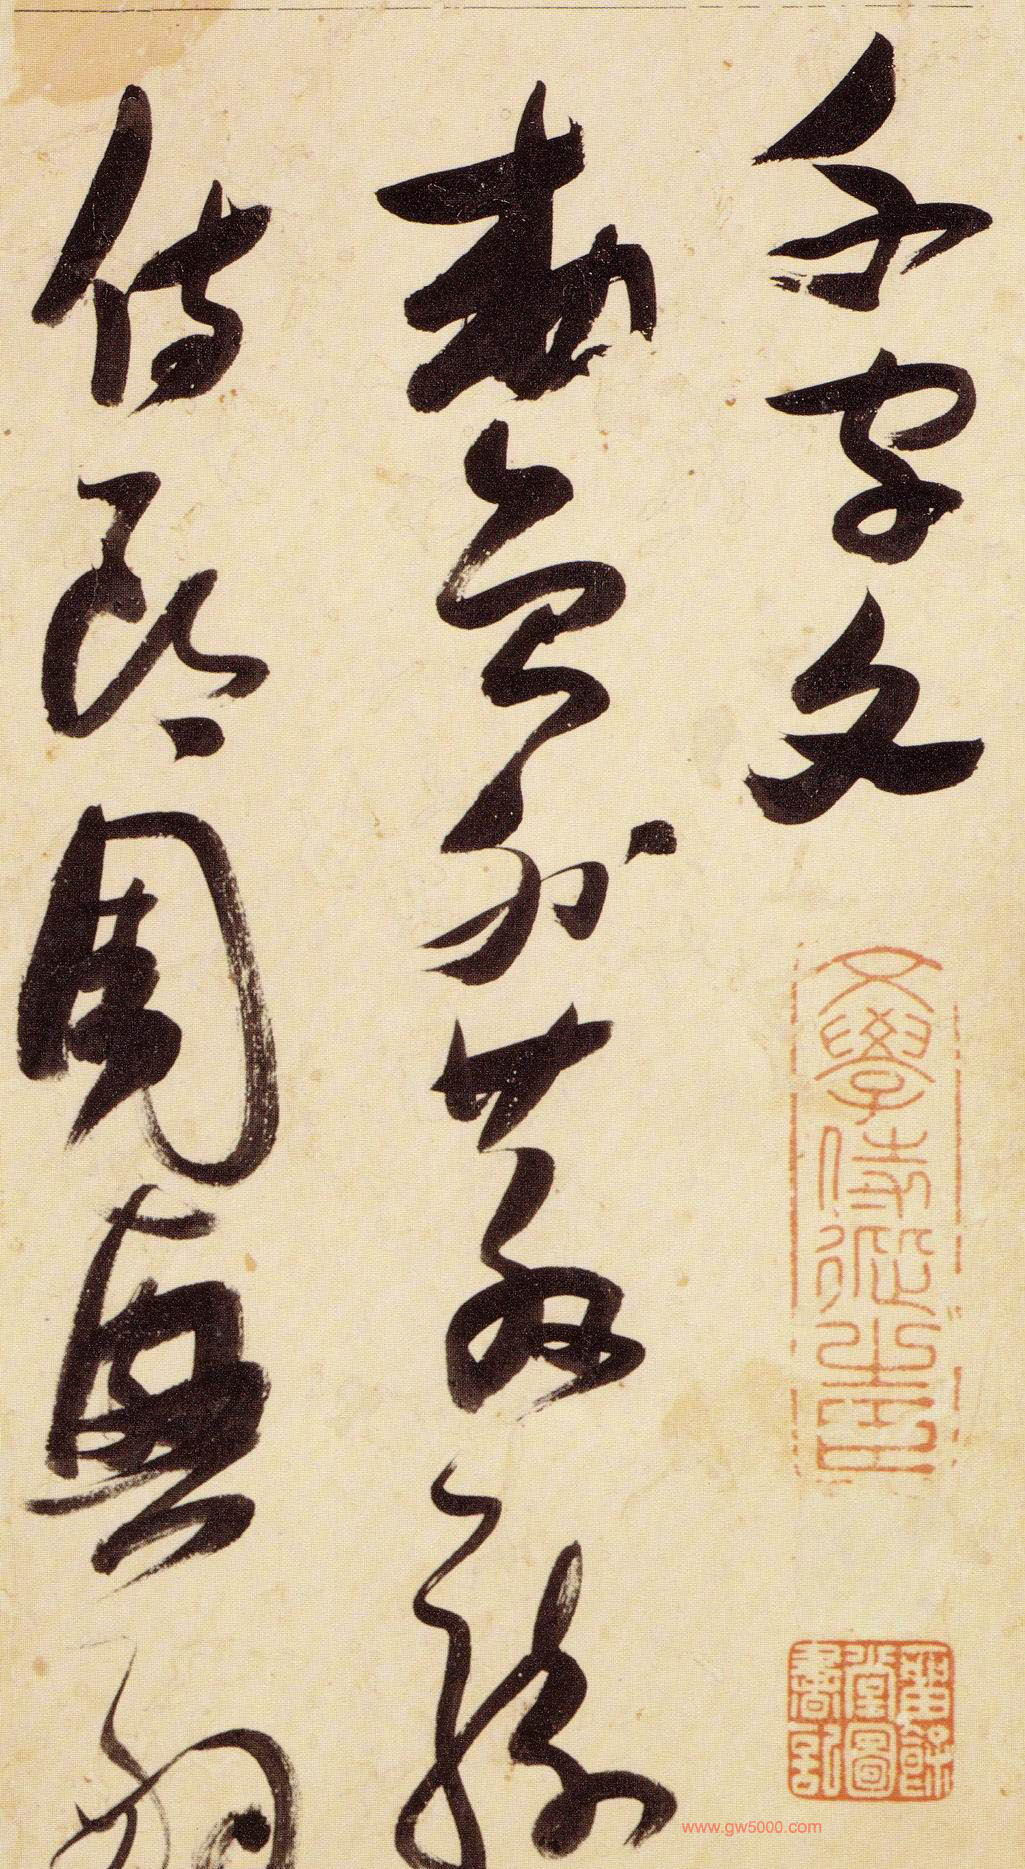 千字文
敕員外散騎
侍郎周興嗣
文學侍從之臣
圖書印
www.gw5000.com